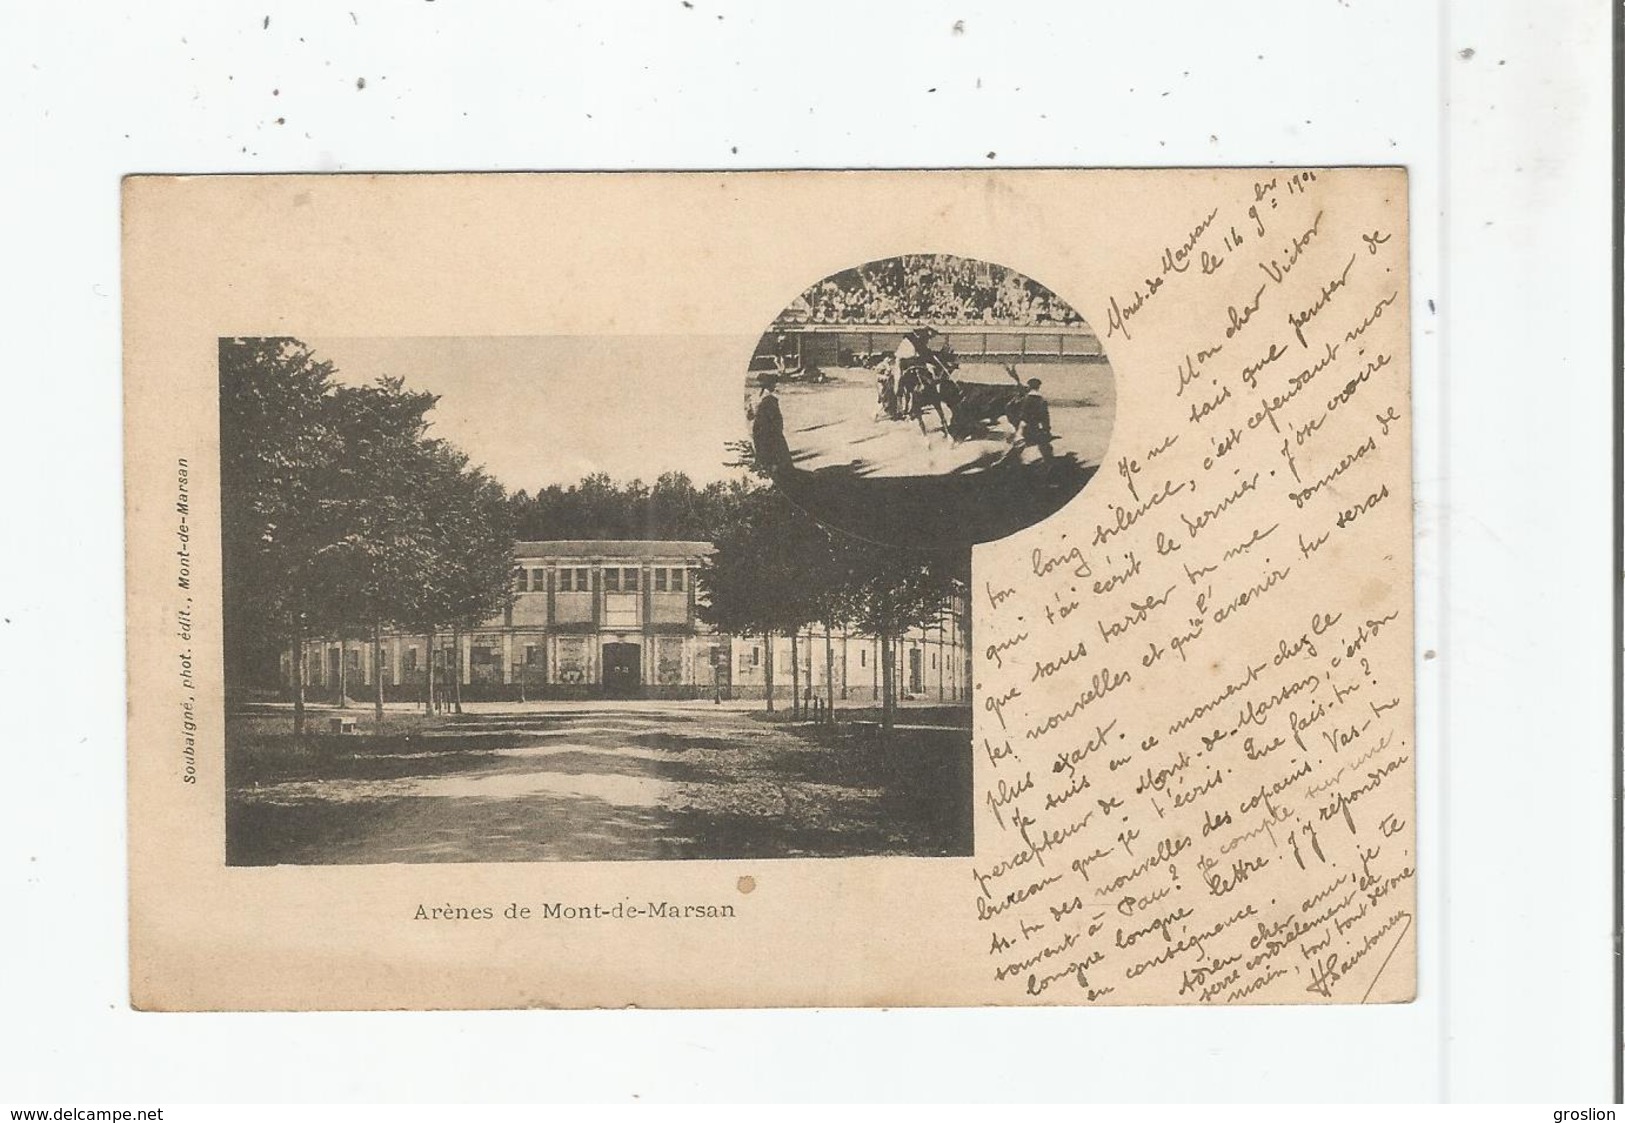 Mont-de-Marsan
le 16 9bre 1901
Mon cher Victor
Je ne sais que penser de
ton long silence, c'est cependant moi
qui t'ai écrit le dernier. J'ose croire
que sans tarder tu me donneras de
tes nouvelles et qu'à l'avenir tu seras
plus exact.
Je suis en ce moment chez le
percepteur de Mont-de-Marsan, c'est du
bureau que je t'écris. Que fais-tu?
As-tu des nouvelles des copains. Vas-tu
souvent à Pau? Je compte sur une
longue longue lettre. J'y répondrai
en conséquence.
Adieu cher ami, je te
serre cordialement la
main, ton tout dévoué
Soubaigné, phot. édit., Mont-de-Marsan
Arènes de Mont-de-Marsan
www.delcampe.net
groslion